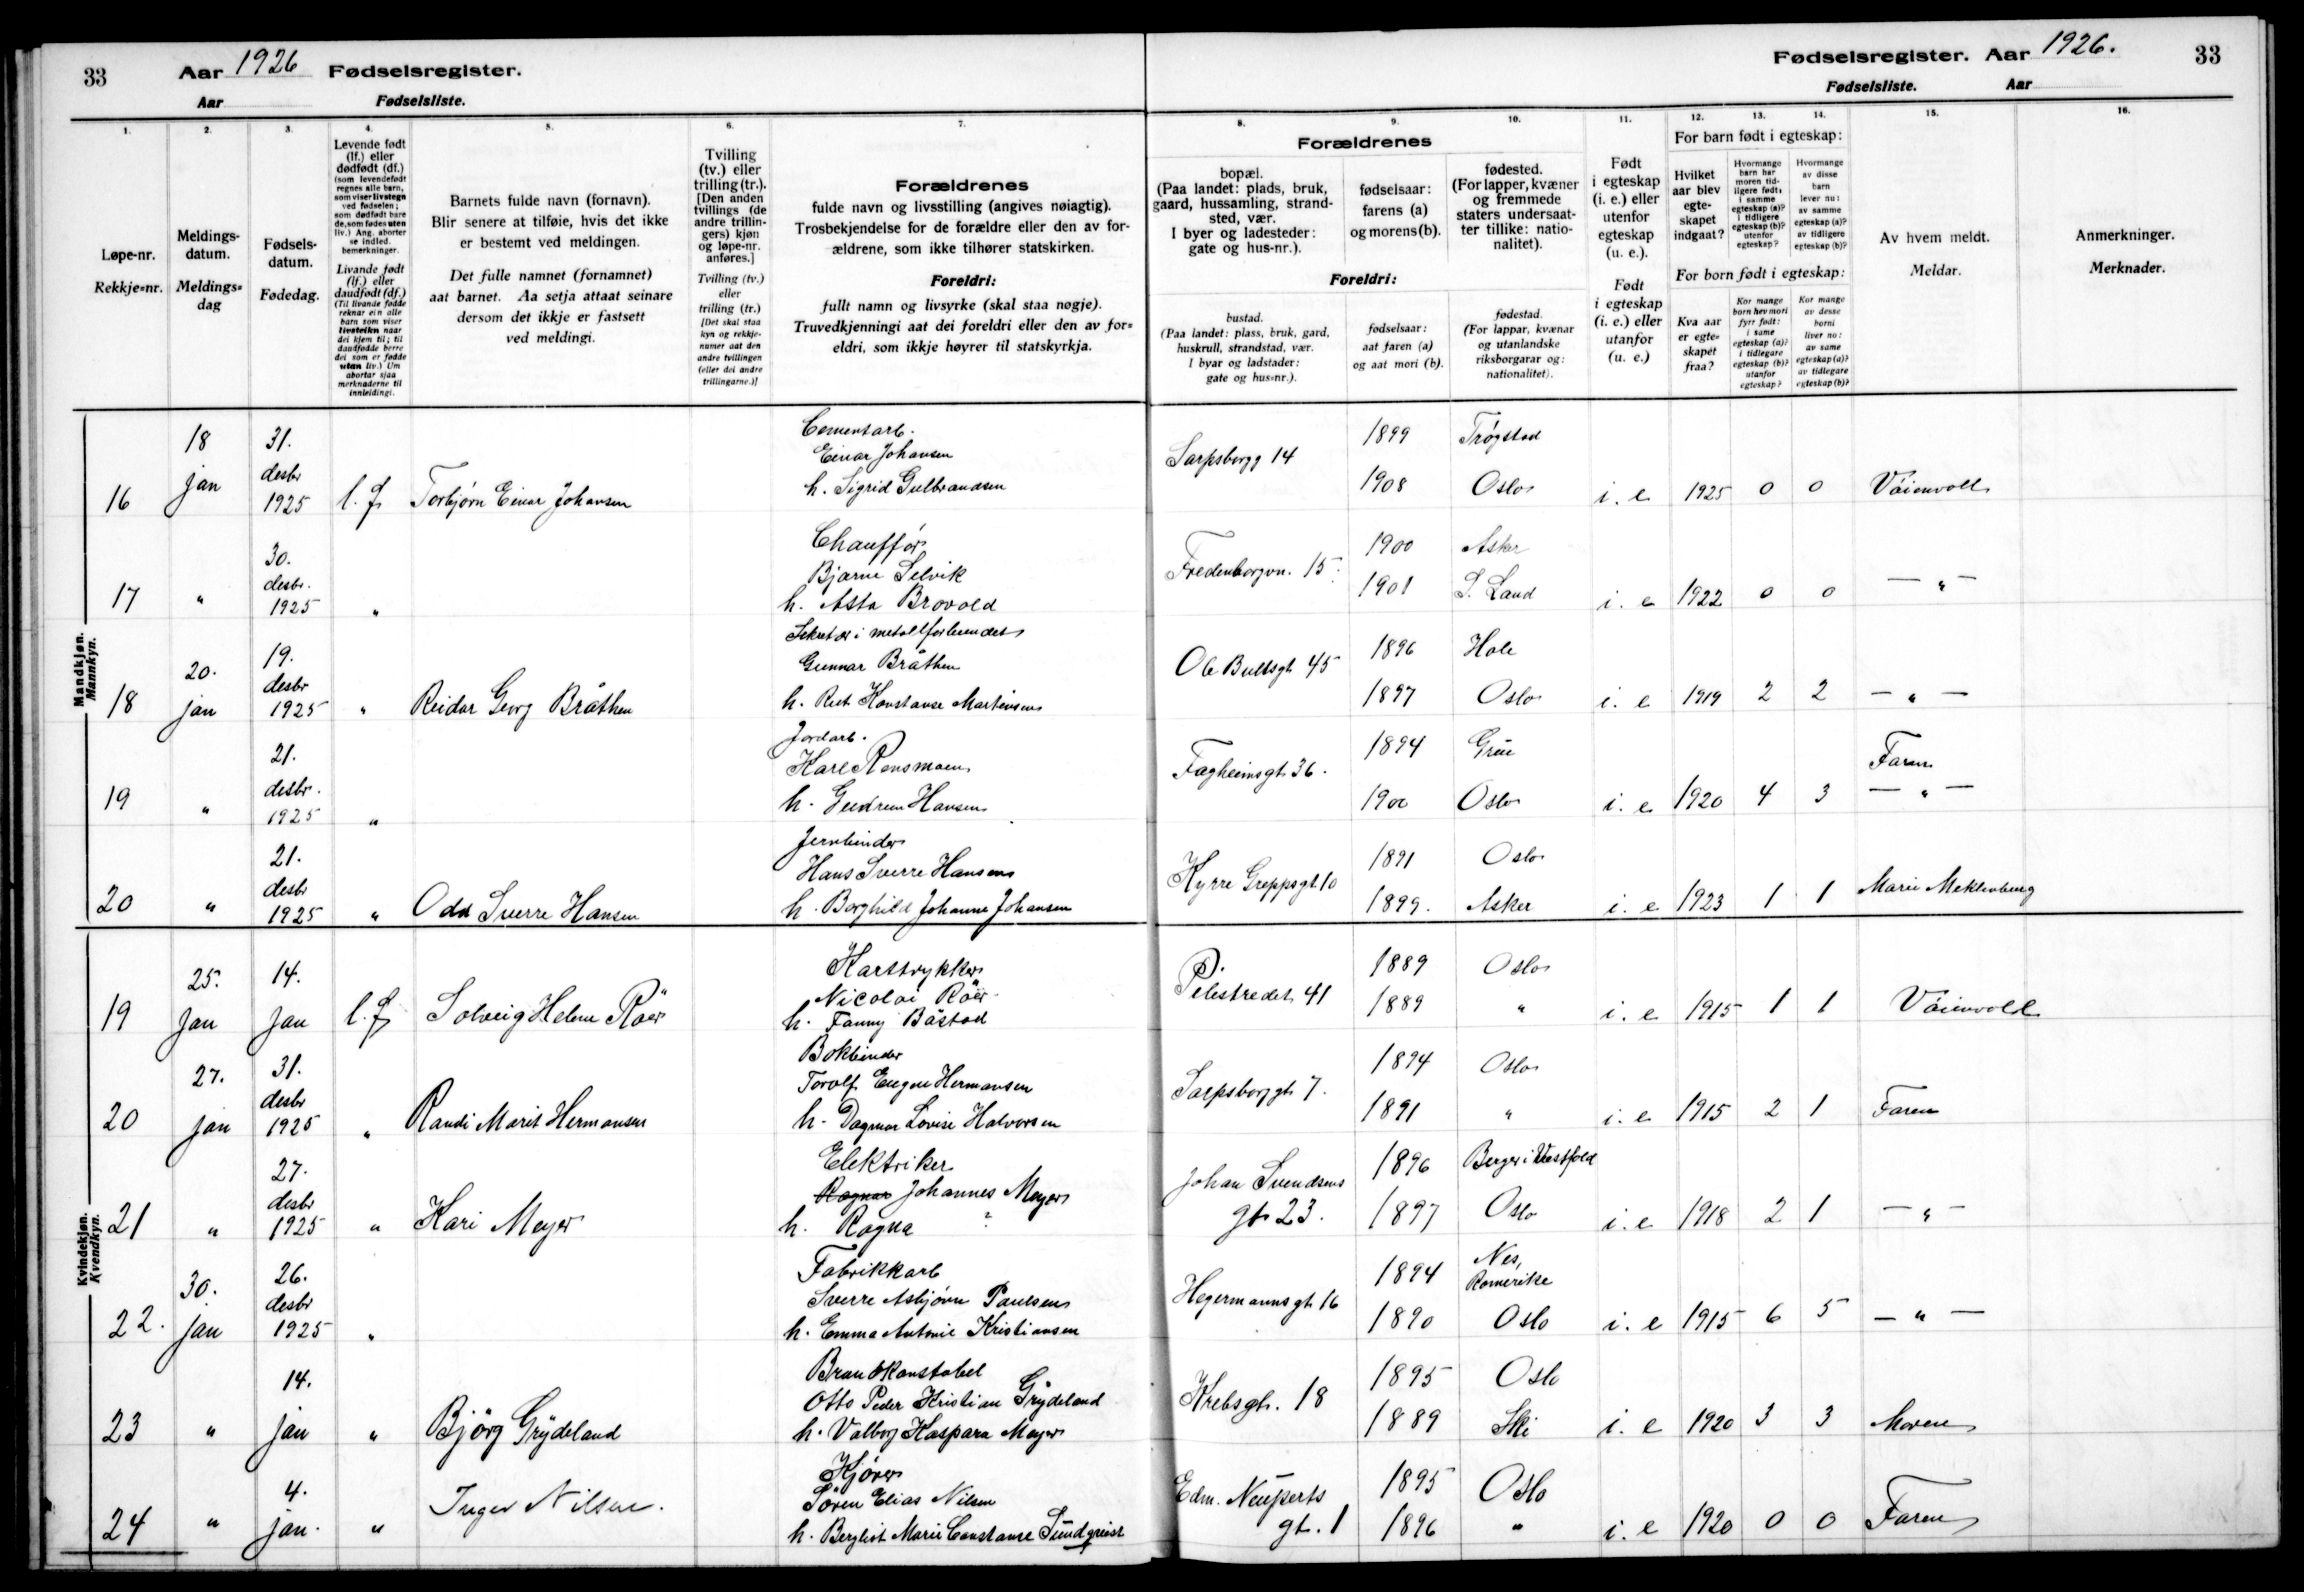 33
Aar 1926 Fødselsregister.
Aar Fødselsliste.
Fødselsregister. Aar 1926.
33
Fødselsliste. Aar
1.
Løpe-nr.
Rekkje=nr.
2.
Meldings-
datum.
Meldings=
dag
3.
Fødsels-
datum.
Fødedag.
4.
Levende født
(lf.) eller
dødfødt (df.)
(som levendefødt
regnes alle barn,
som viser livstegn
ved fødselen;
som dødfødt bare
de, som fødes uten
liv.) Ang. aborter
se indled.
bemerkninger.
Livande født
(lf.) eller
daudfødt (df.)
(Til livande fødde
reknar ein alle
barn som viser
livsteikn naar
dei kjem til; til
daudfødde berre
dei som er fødde
utan liv.) Um
abortar sjaa
merknaderne til
innleidingi.
5.
Barnets fulde navn (fornavn).
Blir senere at tilføie, hvis det ikke
er bestemt ved meldingen.
Det fulle namnet (fornamnet)
aat barnet. Aa setja attaat seinare
dersom det ikkje er fastsett
ved meldingi.
6.
Tvilling
(tv.) eller
trilling (tr.).
[Den anden
tvillings (de
andre trillin-
gers) kjøn
og løpe-nr.
anføres.]
Tvilling (tv.)
eller
trilling (tr.)
[Det skal staa
kyn og rekkje-
numer aat den
andre tvillingen
(eller dei andre
trillingarne.)]
7.
Forældrenes
fulde navn og livsstilling (angives nøiagtig).
Trosbekjendelse for de forældre eller den av for-
ældrene, som ikke tilhører statskirken.
Foreldri:
fullt namn og livsyrke (skal staa nøgje).
Truvedkjenningi aat dei foreldri eller den av for=
eldri, som ikkje høyrer til statskyrkja.
Forældrenes
8.
bopæl.
(Paa landet: plads, bruk,
gaard, hussamling, strand-
sted, vær.
I byer og ladesteder:
gate og hus-nr.).
9.
fødselsaar:
farens (a)
og morens (b).
10.
fødested.
(For lapper, kvæner
og fremmede
staters undersaat-
ter tillike: natio-
nalitet).
Foreldri:
bustad.
(Paa landet: plass, bruk, gard,
huskrull, strandstad, vær.
I byar og ladstader:
gate og hus=nr.).
fødselsaar:
aat faren (a)
og aat mori (b).
fødestad.
(For lappar, kvænar
og utanlandske
riksborgarar og:
nationalitet).
11.
Født
i egteskap
(i. e.) eller
utenfor
egteskap
(u. e.).
Født
i egteskap
(i. e.) eller
utanfor
(u. e.)
For barn født i egteskap:
12.
Hvilket
aar blev
egte-
skapet
indgaat?
13.
Hvormange
barn har
moren tid-
ligere født:
i samme
egteskap (a)?
i tidligere
egteskap (b)?
utenfor
egteskap?
14.
Hvormange
av disse
barn
lever nu:
av samme
egteskap (a)?
av tidligere
egteskap (b)?
For born født i egteskap:
Kva aar
er egte=
skapet
fraa?
Kor mange
born hev mori
fyrr født:
i same
egteskap (a)?
i tidlegare
egteskap (b)?
utanfor
egteskap?
Kor mange
av desse
borni
liver no:
av same
egteskap (a)?
av tidlegare
egteskap (b)?
15.
Av hvem meldt.
Meldar.
16.
Anmerkninger.
Merknader.
Mandkjøn.
Mannkyn.
16 18 jan 31. desbr 1925 l. f Torbjørn Einar Johansen
Cementarb.
Einar Johansen
h. Sigrid Gulbrandsen
Sarpsborgg 14 1899 Trøgstad
1908 Oslo i. e 1925 0 0 Vöienvoll
17 " 30. desbr. 1925 "
Chauffør
Bjarne Selvik
h. Asta Brovold
Fredenborgvn. 15 1900 Asker
1901 S. Land i. e 1922 0 0 — " —
18 20. jan 19. desbr 1925 " Reidar Georg Bråthen
Sekretær i metallforbundet
Gunnar Bråthen
h. Rut Konstanse Martinsen
Ole Bullsgt 45 1896 Hole
1897 Oslo i. e 1919 2 2 — " —
19 " 21. desbr. 1925 "
Jordarb.
Karl Rensmoen
h. Gudrun Hansen
Fagheimsgt 36. 1894 Grue
1900 Oslo i. e 1920 4 3 Faren
— " —
20 " 21. desbr 1925 " Odd Sverre Hansen
Jernbinder
Hans Sverre Hansen
h. Borghild Johanne Johansen
Kyrre Greppsgt. 10 1891 Oslo
1899. Asker i. e 1923 1 1 Marie Meklenburg
Kvindekjøn.
Kvendkyn.
19 25. jan 14. jan l. f Solveig Helene Röer
Karttrykker
Nicolai Röer
h. Fanny Båstad
Pilestredet 41 1889 Oslo
1889 " i. e 1915 1 1 Vöienvold
20 27. jan 31. desbr 1925 " Randi Marit Hermansen
Bokbinder
Torolf Eugen Hermansen
h. Dagmar Lovise Halvorsen
Sarpsborggt 7. 1894 Oslo
1891 " i. e 1915 2 1 Faren
21 " 27. desbr 1925 " Kari Meyer
Elektriker
Ragnar Johannes Meyer
h. Ragna ?
Johan Svendsens
gt 23. 1896 Berger i Vestfold
1897 Oslo i. e 1918 2 1 — " —
22. 30. jan 26. desbr 1925 "
Fabrikkarb
Sverre Asbjørn Paulsen
h. Emma Antonie Kristiansen
Hegermannsgt 16 1894 Nes,
Romerike
1890 Oslo i. e 1915 6 5 — " —
23 " 14. jan " Bjørg Grydeland
Brandkonstabel
Otto Peder Kristian Grydeland
h. Valborg Kaspara Meyer
Krebsgt. 18 1895 Oslo
1889 Ski i. e 1920 3 3 Moren
24 " 4. jan. " Inger Nilsen.
Kjører
Søren Elias Nilsen
h. Bergliot Marie Constanse Sundqvist
Edm. Neuperts
gt. 1 1895 Oslo
1896 " i. e 1920 0 0 Faren